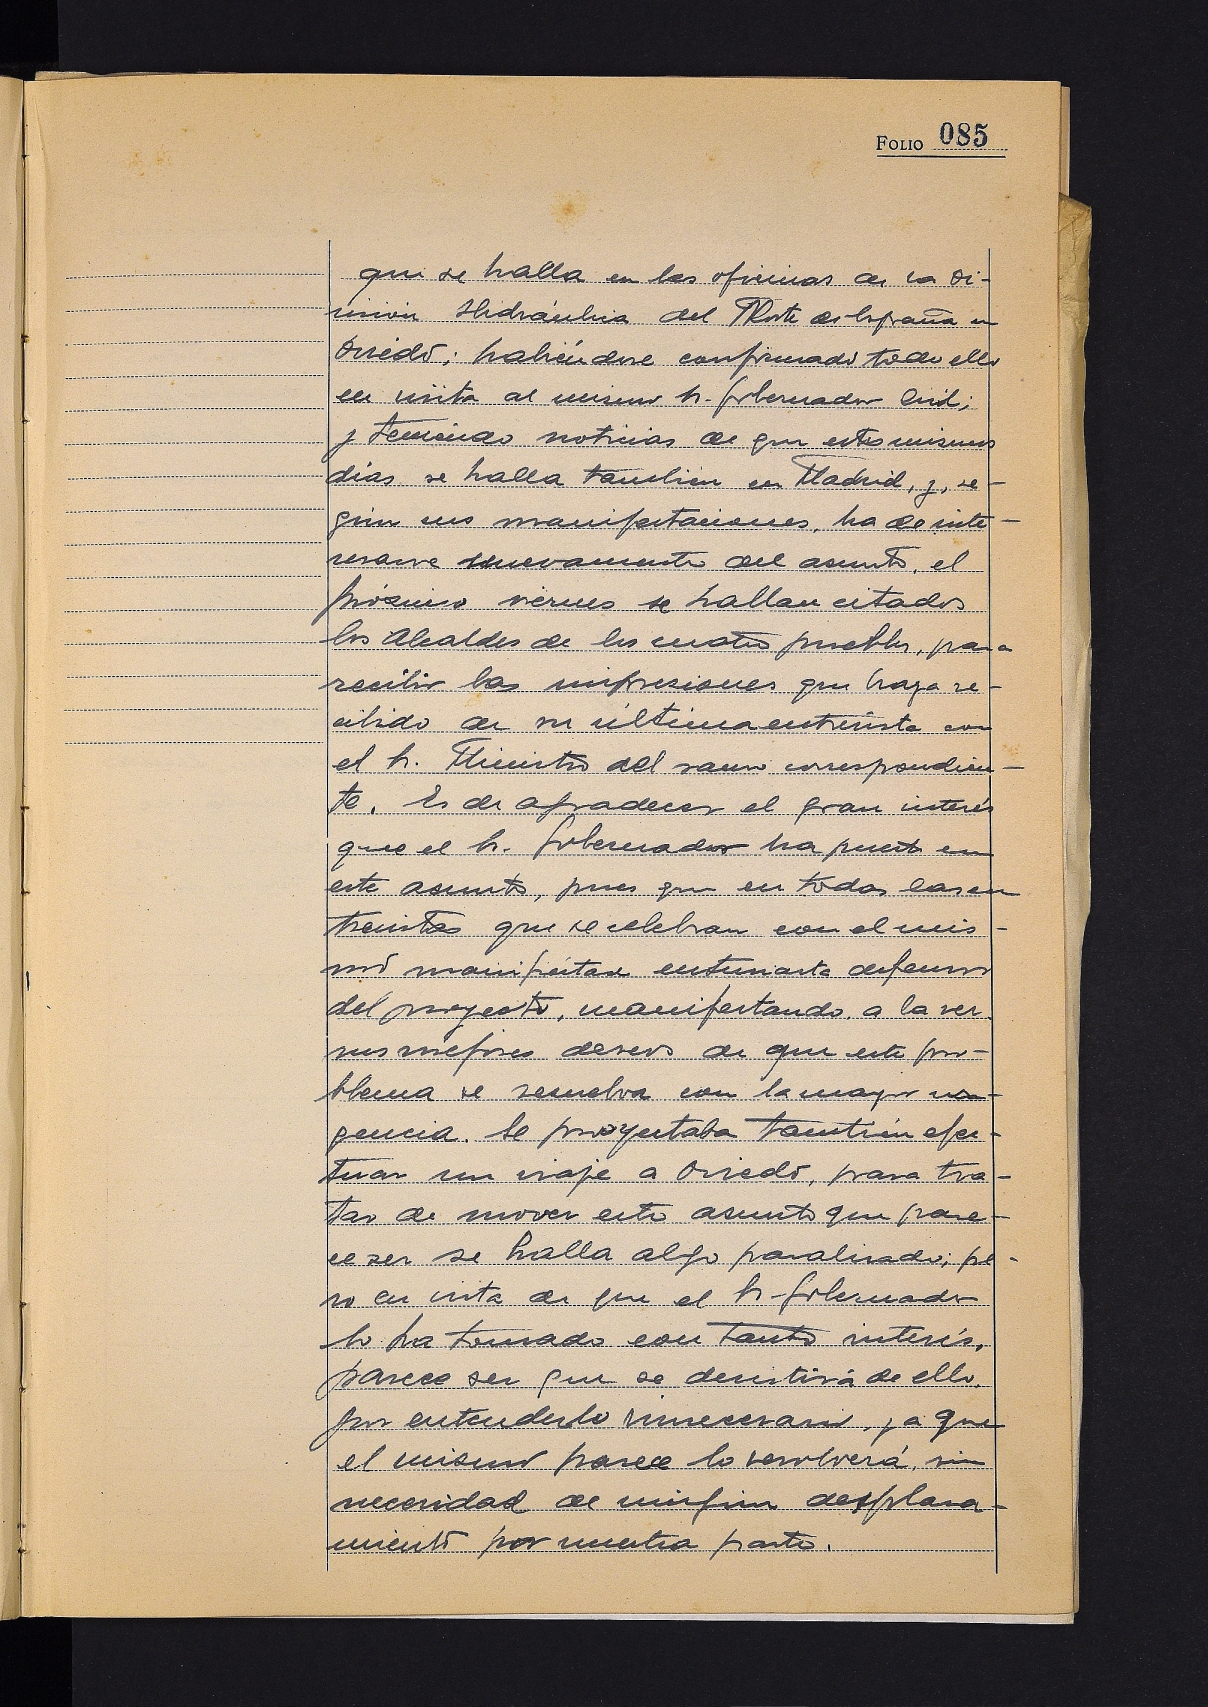 FOLIO 085
que se halla en las oficinas de la Di-
visión Hidráulica del Norte de España en
Oviedo; habiéndose confirmado todo ello
en visita al mismo Sr. Gobernador Civil;
y teniendo noticias de que estos mismos
días se halla también en Madrid, y, se-
gún sus manifestaciones, ha de inte-
resarse nuevamente del asunto, el
próximo viernes se hallan citados
los Alcaldes de los cuatro pueblos, para
recibir las impresiones que haya re-
cibido de su última entrevista con
el Sr. Ministro del ramo correspondien-
te. Es de agradecer el gran interés
que el Sr. Gobernador ha puesto en
este asunto, pues que en todas las en
trevistas que se celebran con el mis-
mo manifiéstase entusiasta defensor
del proyecto, manifestando, a la vez
sus mejores deseos de que este pro-
blema se resuelva con la mayor ur-
gencia. Se proyectaba también efec-
tuar un viaje a Oviedo, para tra-
tar de mover este asunto que pare-
ce ser se halla algo paralizado; pe-
ro en vista de que el Sr. Gobernador
lo ha tomado con tanto interés,
parece ser que se desistirá de ello,
por entenderlo innecesario, ya que
el mismo parece lo resolverá, sin
necesidad de ningún desplaza-
miento por nuestra parte.